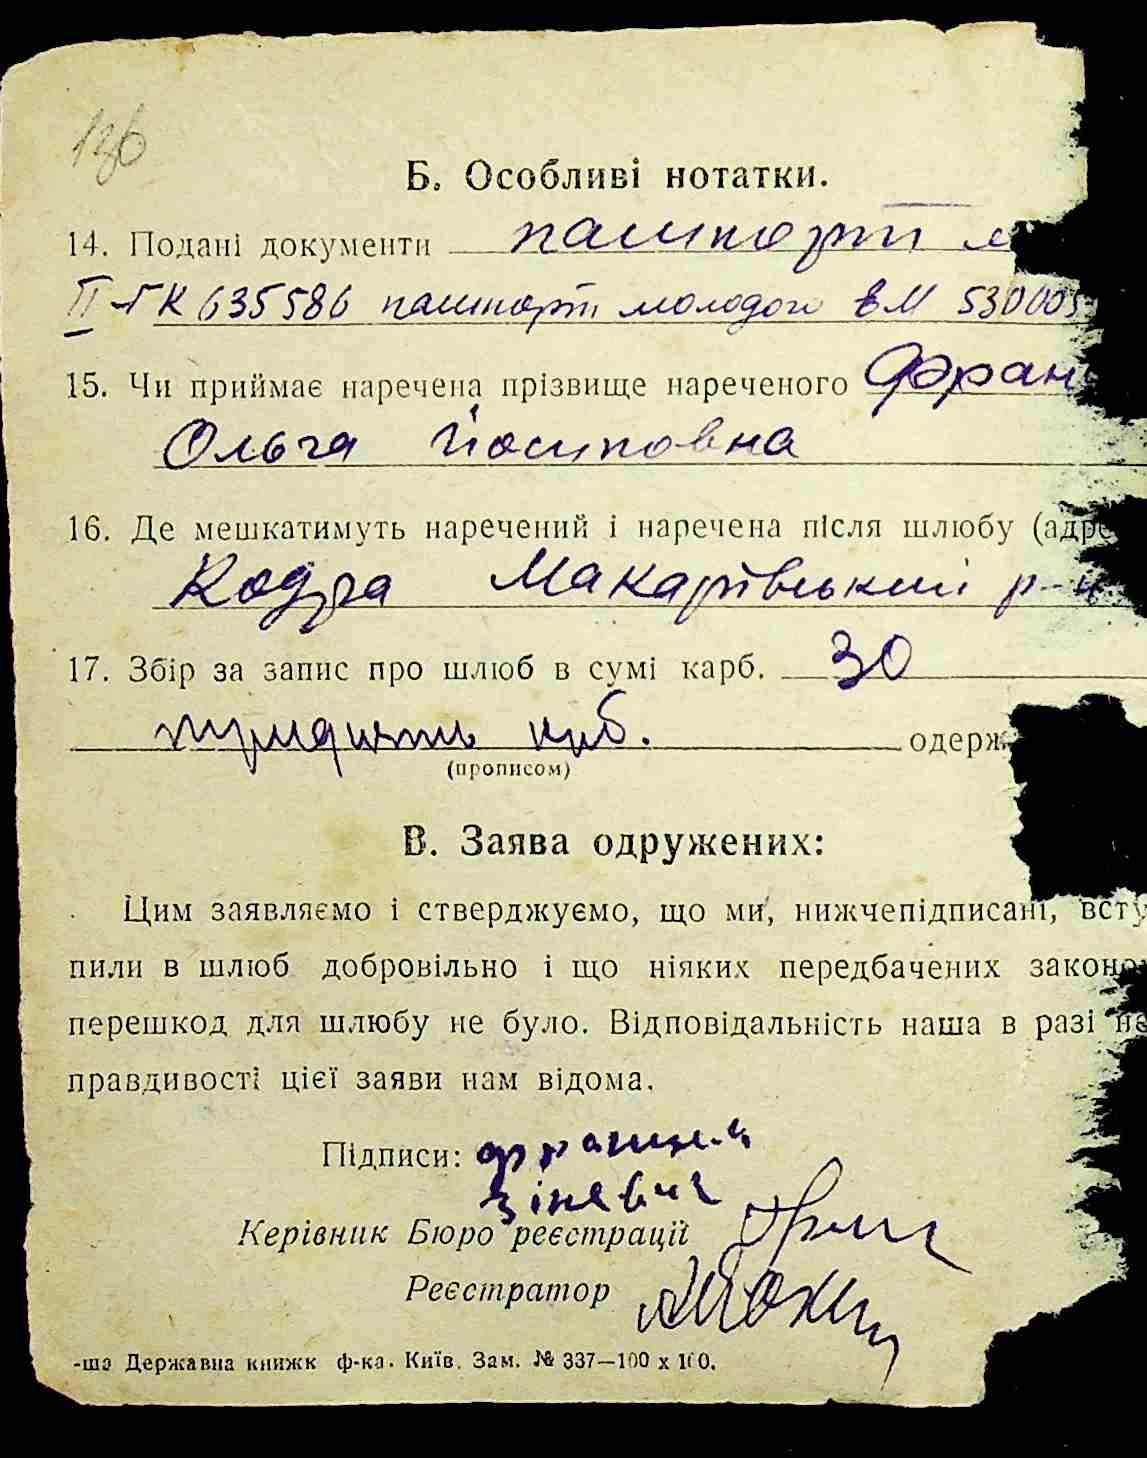 136
Б. Особливі нотатки.
14. Подані документи пашпорти м
ІІ-ГК 635586 пашпорт молодого ВМ 530005
15. Чи приймає наречена прізвище нареченого Фран
Ольга Йосиповна
16. Де мешкатимуть наречений і наречена після шлюбу (адре
Кодра Макарівський р-н
17. Збір за запис про шлюб в сумі карб. 30
тридцять крб. одерж
(прописом)
В. Заява одружених:
Цим заявляємо і стверджуємо, що ми, нижчепідписані, всту
пили в шлюб добровільно і що ніяких передбачених законом
перешкод для шлюбу не було. Відповідальність наша в разі не
правдивості цієї заяви нам відома.
Підписи:
зіневич
Керівник Бюро реєстрації
Реєстратор
-ша Державна книжк ф-ка. Київ. Зам. № 337—100 х 100.